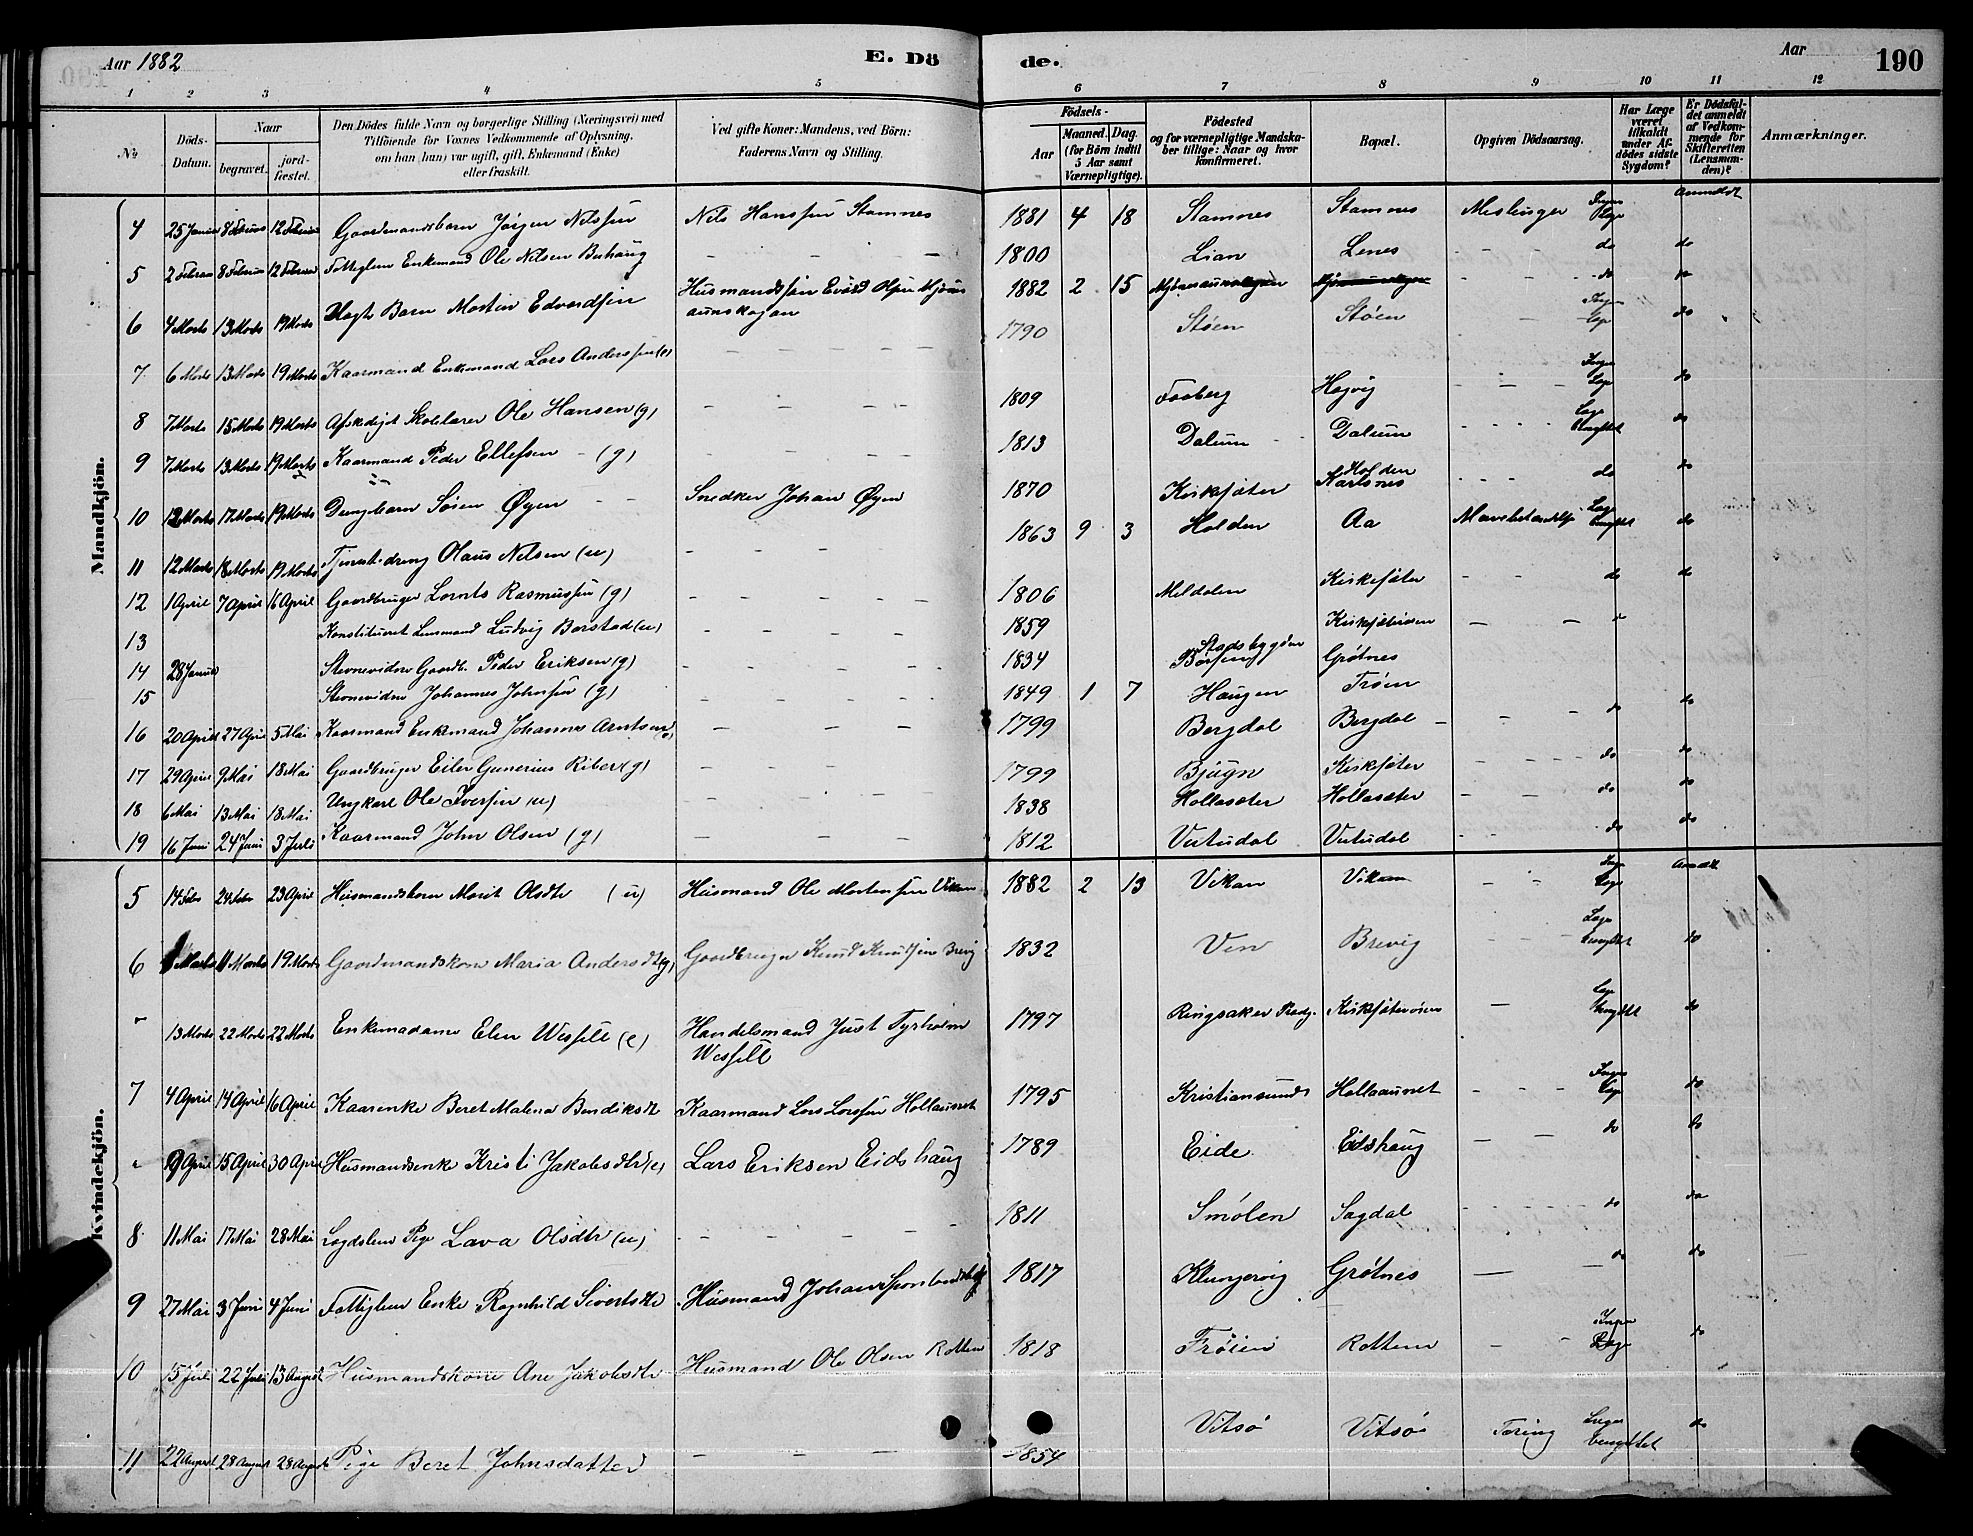 Aar 1882
E. Dö
de.
Aar
190
1 2 3 4 5 6 7 8 9 10 11 12
No
Döds-Datum.
Naar
begravet.
jord-fæstet.
Den Dödes fulde Navn og borgerlige Stilling (Næringsvei) med
Tilföiende for Voxnes Vedkommende af Oplysning,
om han (hun) var ugift, gift, Enkemand (Enke)
eller fraskilt.
Ved gifte Koner: Mandens, ved Börn:
Faderens Navn og Stilling.
Födsels-
Aar
Maaned. Dag.
(for Börn indtil
5 Aar samt
Værnepligtige).
Födested
og for værnepligtige Mandska-
ber tillige: Naar og hvor
konfirmeret.
Bopæl.
Opgiven Dödsaarsag.
Har Læge
været
tilkaldt
under Af-
dödes sidste
Sygdom?
Er Dödsfal-
det anmeldt
af Vedkom-
mende for
Skifteretten
(Lensman-
den)?
Anmærkninger.
Mandkjön.
4 25 Januar 8 Februar 12 Februar Gaardmandsbarn Jørgen Nilssen Nils Hanssen Stamnes 1881 4 18 Stamnes Stamnes Meslinger Ingen Læge Anmeldt
5 2 Februar 8 Februar 12 Februar Fattiglem Enkemand Ole Nilsen Buhaug - - - 1800 Lian Lenes - - - do do
6 4 Marts 13 Marts 19 Marts Uægte Barn Martin Edvardsen Husmandssøn Evard Olsen Mjønes
aunskogan 1882 2 15 do do
7 6 Marts 13 Marts 19 Marts Kaarmand Enkemand Lars Anderssen (e) - - - - 1790 Støen Støen Ingen Læge do
8 7 Marts 15 Marts 19 Marts Afskediget Skolelærer Ole Hansen (g) - - - - 1809 Faaberg Hejvig - - - Ingen Læge do
9 7 Marts 13 Marts 19 Marts Kaarmand Peder Ellefsen - (g) - - - - 1813 Dalum Dalum - - - - Læge benyttet do
10 12 Marts 17 Marts 19 Marts Drengbarn Søren Øyen - - Snedker Johan Øyen 1870 Kirksæter Holden Karlsnes - - - do do
11 12 Marts 18 Marts 19 Marts Tjenestedreng Olaus Nilsen (u) - - - - 1863 9 3 Holden Aa Læge benyttet do
12 1 April 7 April 16 April Gaardbruger Lornts Rasmussen (g) - - - - 1806 Meldalen Kirksæter - - do do
13 Konstitueret Lensmand Ludvig Borstad (u) - - - - 1859 Kirksæterøren - - do
14 28 Januar Stevnevidne Gaardb. Peder Eriksen (g) - - - - 1834 Stadsbygden
Børsen Grøtnes
15 Stevnevidne Johannes Johnsen (g) - - - - 1849 1 7 Haugen Trøen
16 20 April 27 April 5 Mai Kaarmand Enkemand Johannes Arntsen - - - 1799 Bergdal Bergdal - - - do do
17 29 April 9 Mai 18 Mai Gaardbruger Eiler Gunerius Riber (g) - - - 1799 Bjugn Kirksæter - - - do do
18 6 Mai 13 Mai 18 Mai Ungkarl Ole Iversen (u) - - - - 1838 Hollasæter Hollasæter - - do do
19 16 Juni 24 Juni 3 Juli Kaarmand John Olsen (g) - - - 1812 Vutudal Vutudal - - do do
Kvindekjön.
5 14 Feb 24 Feb 23 April Husmandsbarn Marit Olsdtr (u) Husmand Ole Mortensen Vikan 1882 2 13 Vikan Vikan - - Ingen Læge Anmeldt
6 Marts 11 Marts 19 Marts Gaardmandskone Maria Andersdtr (g) Gaardbruger Knud Knudsen Brevig 1832 Ven Brevig - - Læge benyttet do
13 Marts 22 Marts 22 Marts Enkemadame Elen Wessell (e) Handelsmand Just Tyrholm
Wessell 1797 Ringsaker Prestgj. Kirksæterøren - Læge benyttet do
7 4 April 14 April 16 April Kaarenke Beret Malena Bendiksdt Kaarmand Lars Larssen Hollaunet 1795 Kristiansund Hollaaunet - - - Ingen Læge do
9 April 15 April 30 April Husmandsenke Kristi Jakobsdtr (e) Lars Eriksen Eidshaug 1789 Eide Eidshaug - - do do
8 11 Mai 17 Mai 28 Mai Lægdslem Pige Lava Olsdtr (u) - - - - 1811 Smølen Sagdal - - do do
9 27 Mai 3 Juni 4 Juni Fattiglem Enke Ragnhild Sivertsdtr Husmand Johan 1817 Klungervig Grøtnes - - do do
10 15 Juli 22 Juli 13 August Husmandskone Ane Jakobsdtr Husmand Ole Olsen Rottem 1818 Frøien Rottem - Ingen Læge do
11 22 August 28 August 28 August Pige Beret Johnsdatter - - - 1854 Vitsø Vitsø Tæring Læge benyttet do